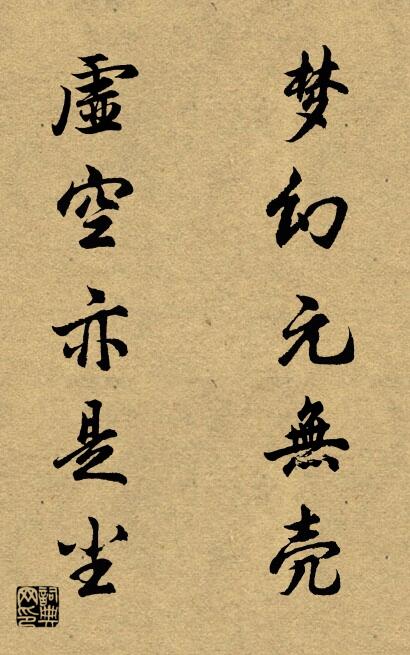 梦幻元無壳
虚空亦是尘
詞典网印